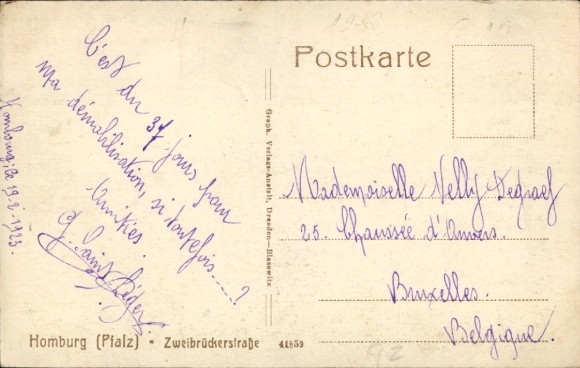 Postkarte
Hombourg, le 19-2-1923.
C'est du 37 jours pour
ma démobilisation, si toutefois.....?
Amitiés.
J. Saint Léger.
Mademoiselle Nelly Degraef
25. Chaussée d'Anvers.
Bruxelles.
Belgique.
Graph. Verlags-Anstalt, Dresden—Blasewitz
Homburg (Pfalz) - Zweibrückerstraße 41859